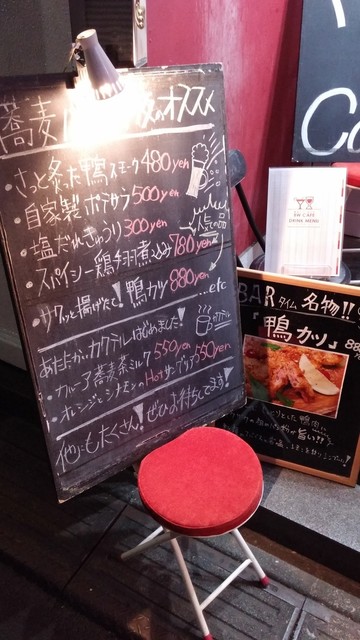 蕎麦 オススメ
・さっと炙った鴨スモーク 480yen
・自家製ポテサラ 500yen
・塩だれきゅうり 300yen
・スパイシー鶏手羽煮込み 780yen
人気の品
・サクッと揚げたて!鴨カツ 880yen
...etc
あたたかいカクテルはじめました!
・カルーア蕎麦茶ミルク 550yen
・オレンジとシナモンのHotサングリア 550yen
他にもたくさん!ぜひお待ちしてます!
DRINK MENU
Ca
BARタイム 名物!!
「鴨カツ」 88
旨い!!